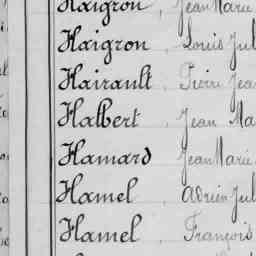 Haigron, Jean Marie
Haigron, Louis Jul
Hairault, Pierre Jea
Halbert, Jean Ma
Hamard, Jean Marie
Hamel, Adrien Jul
Hamel, François